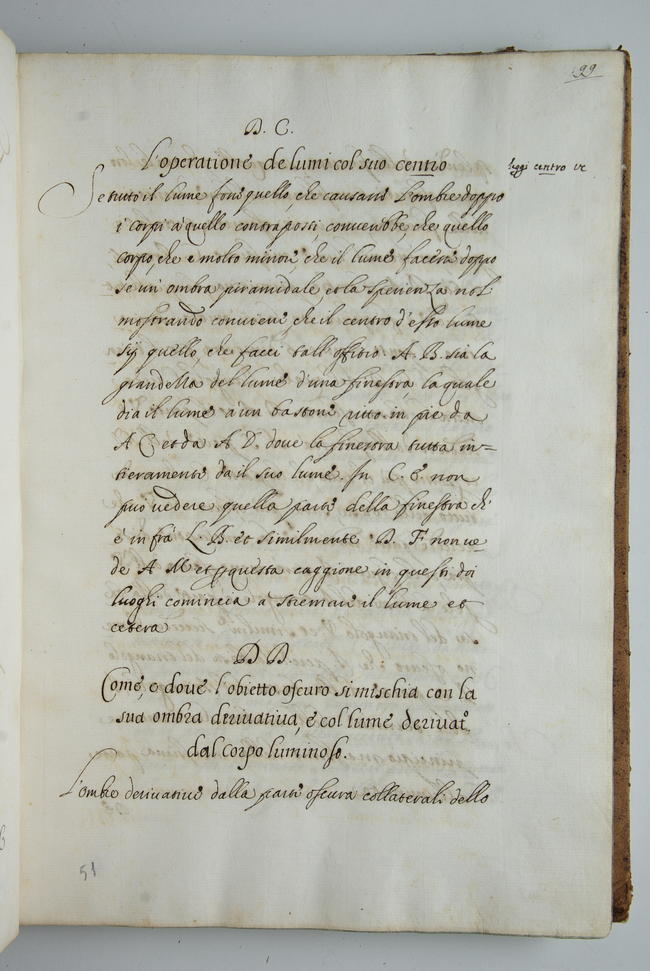 99
D. C.
L'operatione de lumi col suo centro
leggi centro ve
Se tutto il lume fossi quello, che causassi l'ombre doppo
i corpi à quello contraposti, converebbe, che quello
corpo, che e molto minore che il lume facessi doppo
se un ombra piramidale, et la sperienza nol
mostrando conviene, che il centro d'esso lume
sij quello, che facci tall'offitio. A. B. sia la
grandezza del lume d'una finestra la quale
dia il lume a un bastone ritto in pie da
A C et da A D. dove la finestra tutta in=
tieramente da il suo lume. In C. E. non
può vedere quella parte della finestra ch'
è in fra L. B. et similmente D. F. non ve=
de A M et questa caggione in questi doi
luoghi comincia a stremare il lume et
cetera
D D.
Come, e dove l'obietto oscuro si mischia con la
sua ombra derivativa, e col lume derivat.
dal corpo luminoso.
L'ombre derivative dalla parte oscura collaterali dello
51